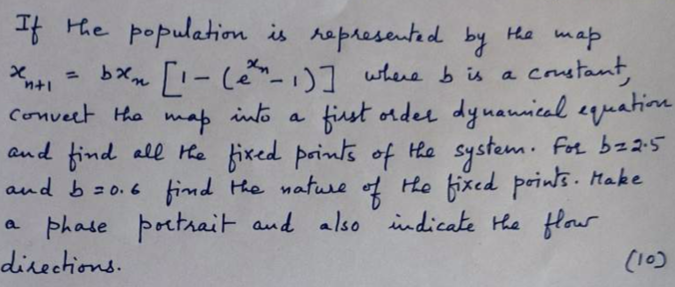 If the population is represented by the map
xₙ₊₁ = bxₙ [1 - (e^xₙ - 1)] where b is a constant,
convert the map into a first order dynamical equation
and find all the fixed points of the system. For b=2.5
and b=0.6 find the nature of the fixed points. Make
a phase portrait and also indicate the flow
directions. (10)